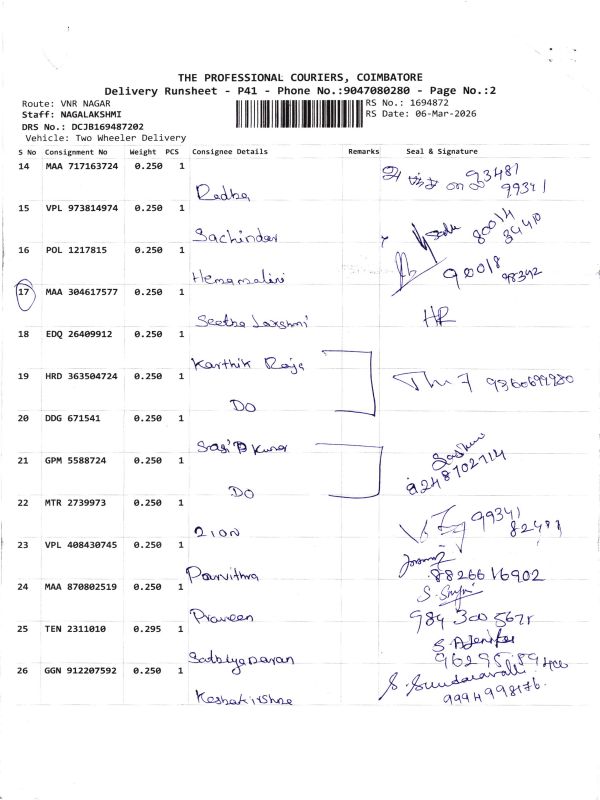 THE PROFESSIONAL COURIERS, COIMBATORE
Delivery Runsheet - P41 - Phone No.:9047080280 - Page No.:2
Route: VNR NAGAR
Staff: NAGALAKSHMI
DRS No.: DCJB169487202
Vehicle: Two Wheeler Delivery
RS No.: 1694872
RS Date: 06-Mar-2026
S No Consignment No Weight PCS Consignee Details Remarks Seal & Signature
14 MAA 717163724 0.250 1
Radha
93481
99341
15 VPL 973814974 0.250 1
Sachinder
80014
84410
16 POL 1217815 0.250 1
Hemamalini
90018
98342
17 MAA 304617577 0.250 1
Seetha Laxshmi HR
18 EDQ 26409912 0.250 1
Karthik Raja
19 HRD 363504724 0.250 1
DO
20 DDG 671541 0.250 1
21 GPM 5588724 0.250 1
DO
9248702114
22 MTR 2739973 0.250 1
ZION
99341
82481
23 VPL 408430745 0.250 1
Parvithra
8826616902
24 MAA 870802519 0.250 1
Praveen
25 TEN 2311010 0.295 1
Sathiyavaran
26 GGN 912207592 0.250 1
S. Sundaravalli
9994998176.